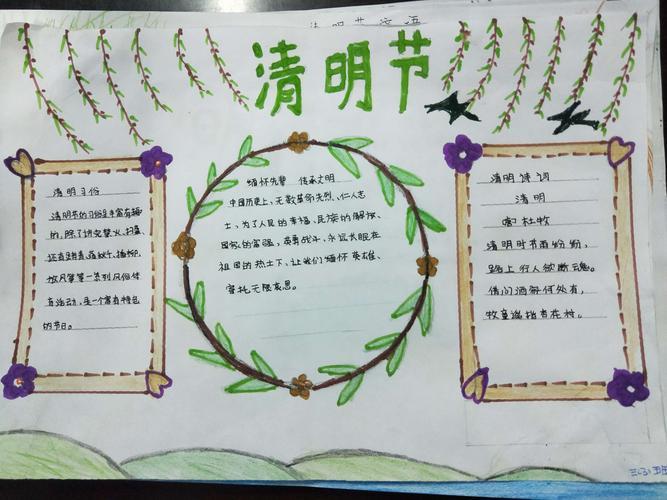 清明节
清明习俗
清明节的习俗是丰富有趣
的,除了讲究禁火、扫墓,
还有踏青、荡秋千、插柳,
放风筝等一系列风俗体
育活动,是一个富有特色
的节日。
缅怀先辈 传承文明
中国历史上,无数革命先烈、仁人志
士,为了人民的幸福、民族的解放、
国家的富强,英勇战斗,永远长眠在
祖国的热土下,让我们缅怀英雄,
寄托无限哀思。
清明诗词
清明
唐杜牧
清明时节雨纷纷,
路上行人欲断魂。
借问酒家何处有,
牧童遥指杏花村。